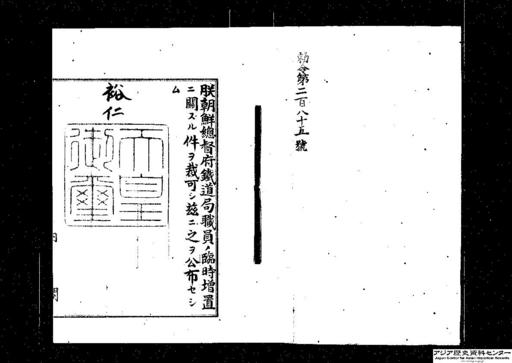 勅令第二百八十五號
朕朝鮮總督府鐵道局職員ノ臨時增置
ニ關スル件ヲ裁可シ玆ニ之ヲ公布セシ
ム
裕仁
天皇御璽
内閣
アジア歴史資料センター
Japan Center for Asian Historical Records